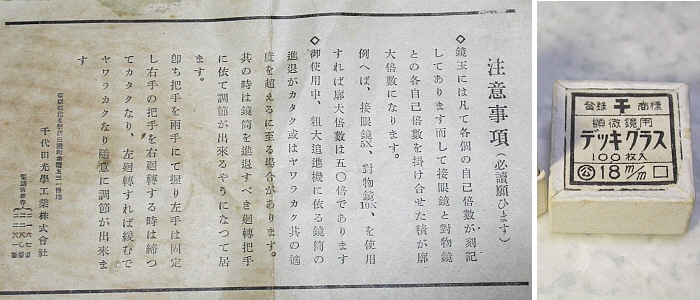 注意事項（必讀願ひます）
◇鏡玉には凡て各個の自己倍數が刻記
してあります而して接眼鏡と對物鏡
との各自己倍數を掛け合せた積が廓
大倍數になります。
例へば、接眼鏡5X、對物鏡10X、を使用
すれば廓大倍數は五〇倍であります
◇御使用中、粗大追進機に依る鏡筒の
進退がカタク或はヤワラカク其の適
度を超えるに至る場合があります。
其の時は鏡筒を進退すべき廻轉把手
に依て調節が出來るやうになつて居
ます。
卽ち把手を兩手にて握り左手は固定
し右手の把手を右廻轉する時は締つ
てカタクなり、左廻轉すれば緩むで
ヤワラカクなり隨意に調節が出來ま
す
千代田光學工業株式會社
登錄 千 商標
顯微鏡用
デッキグラス
100枚入
公 18 m/m □